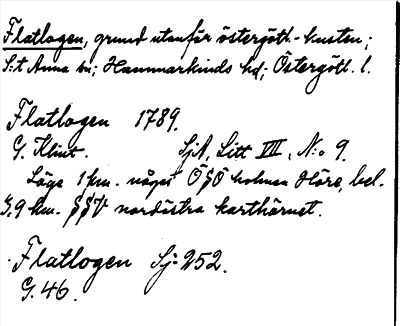 Flatlogen, grund utanför östergötl.-kusten;
S:t Anna sn; Hammarkinds hd; Östergötl. l.
Flatlogen 1789.
G. Klint. SjA, Litt VIII, N:o 9.
Läge 1 km. något ÖSÖ holmen Höre, bel.
3,9 km. SSV nordöstra karthörnet.
Flatlogen Sj-252.
G. 46.